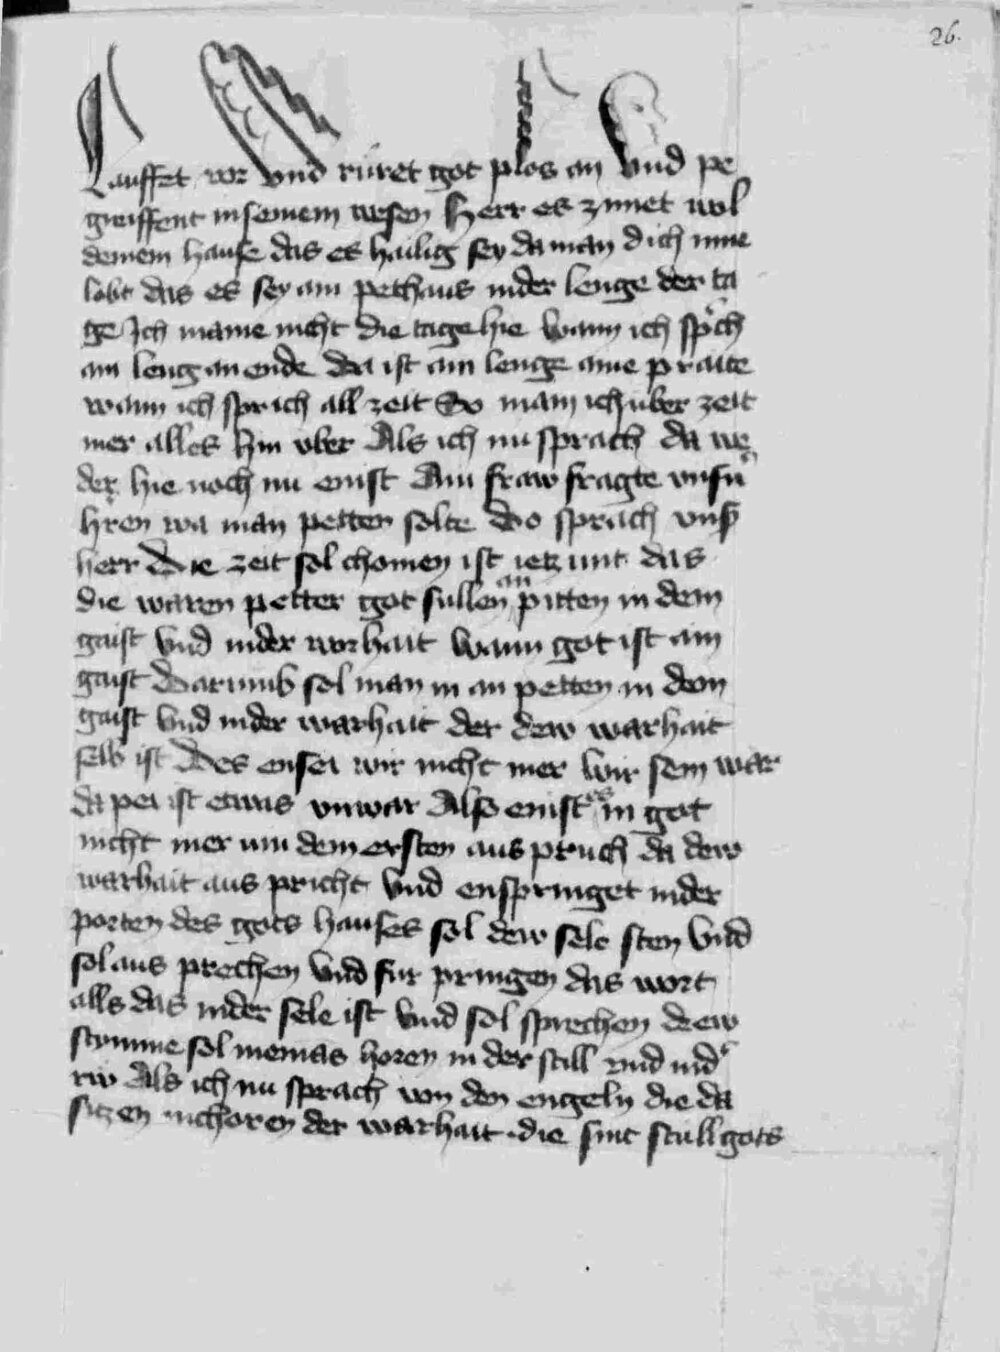 26.
Lauffet vor vnd rüret got plos an vnd pe
greiffent in seinem wesen Herr es zimet wol
deinem hause das es hailig sey da man dich inne
lobt das es sey ain pethaus in der lenge der ta
ge Ich maine nicht die tage hie wann ich sprich
ain leng an ende da ist ain lenge aine praite
wann ich sprich all zeit So main ich über zeit
mer alles hin vber Als ich nu sprach da we
der hie noch nu enist Ain fraw fragte vnsn̄
hren wa man petten solte Do sprach vnsß
herr Die zeit sol chomen ist ietzunt das
die waren petter got sullen an pitten in dem
gaist vnd in der worhait wann got ist ain
gaist Darumb sol man in an petten in dem
gaist vnd in der warhait der dew warhait
selb ist Des ensei wir nicht mer wir sein war
da pei ist etwas vnwar Also enist es in got
nicht mer inn dem ersten aus pruch da dew
warhait aus pricht vnd enspringet in der
porten des gots hauses sol dew sele sten vnd
sol aus prechen vnd fur pringen das wort
alls das in der sele ist vnd sol sprechen dew
stymme sol niemas horen in der still vnd in d'
rw Als ich nu sprach von den engeln die da
sitzen in choren der warhait die sint stull gots